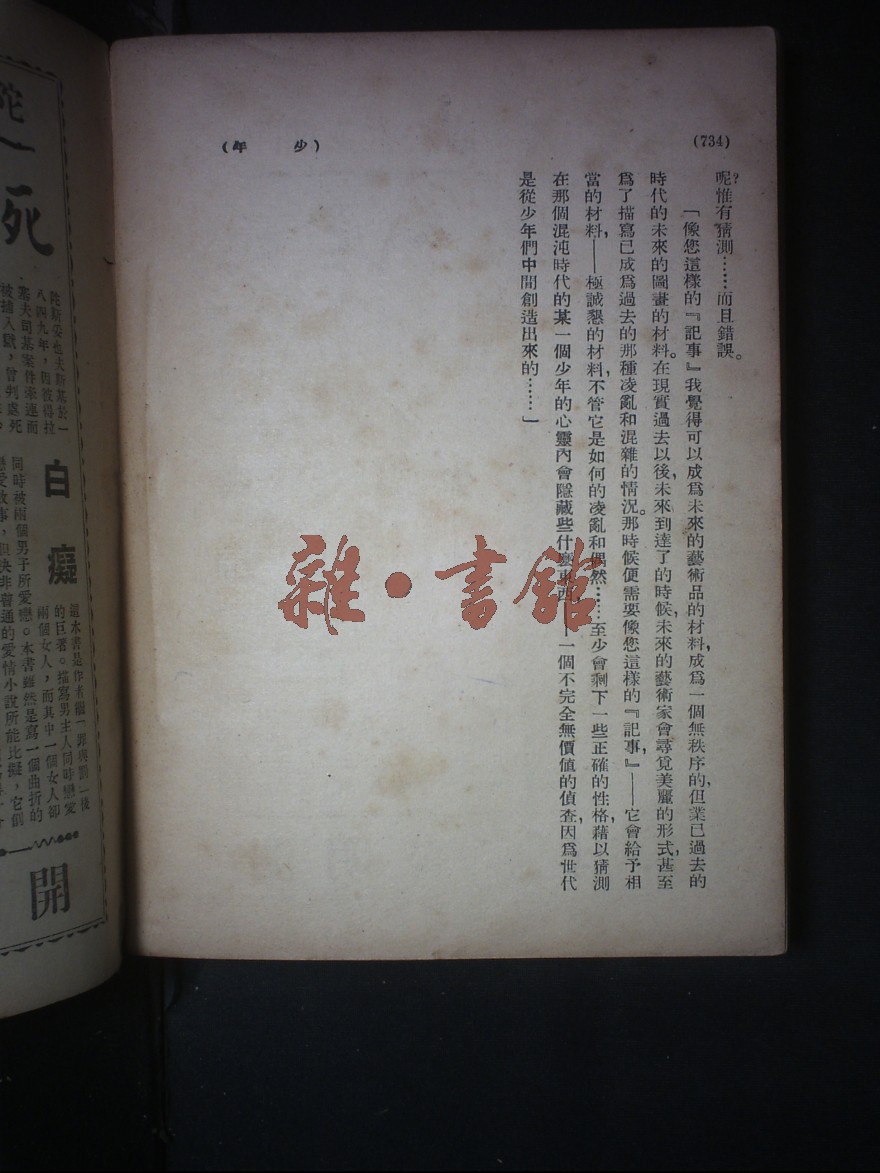 (734)
(少年)
呢?惟有猜測……而且錯誤。
「像您這樣的『記事』我覺得可以成爲未來的藝術品的材料,成爲一個無秩序的,但業已過去的
時代的未來的圖畫的材料。在現實過去以後,未來到達了的時候,未來的藝術家會尋覓美麗的形式,甚至
爲了描寫已成爲過去的那種凌亂和混雜的情況。那時候便需要像您這樣的『記事』——它會給予相
當的材料,——極誠懇的材料,不管它是如何的凌亂和偶然……至少會剩下一些正確的性格,藉以猜測
在那個混沌時代的某一個少年的心靈內會隱藏些什麼東西,——一個不完全無價值的偵查,因爲世代
是從少年們中間創造出來的……」
雜·書館
死
陀斯妥也夫斯基於一
八四九年,因彼得拉
塞夫司基案件牽連而
被捕入獄,曾判處死
白癡
這本書是作者繼「罪與罰」後
的巨著。描寫男主人同時戀愛
兩個女人,而其中一個女人卻
同時被兩個男子所愛戀。本書雖然是寫一個曲折的
戀愛故事,但決非普通的愛情小說所能比擬,它創
開